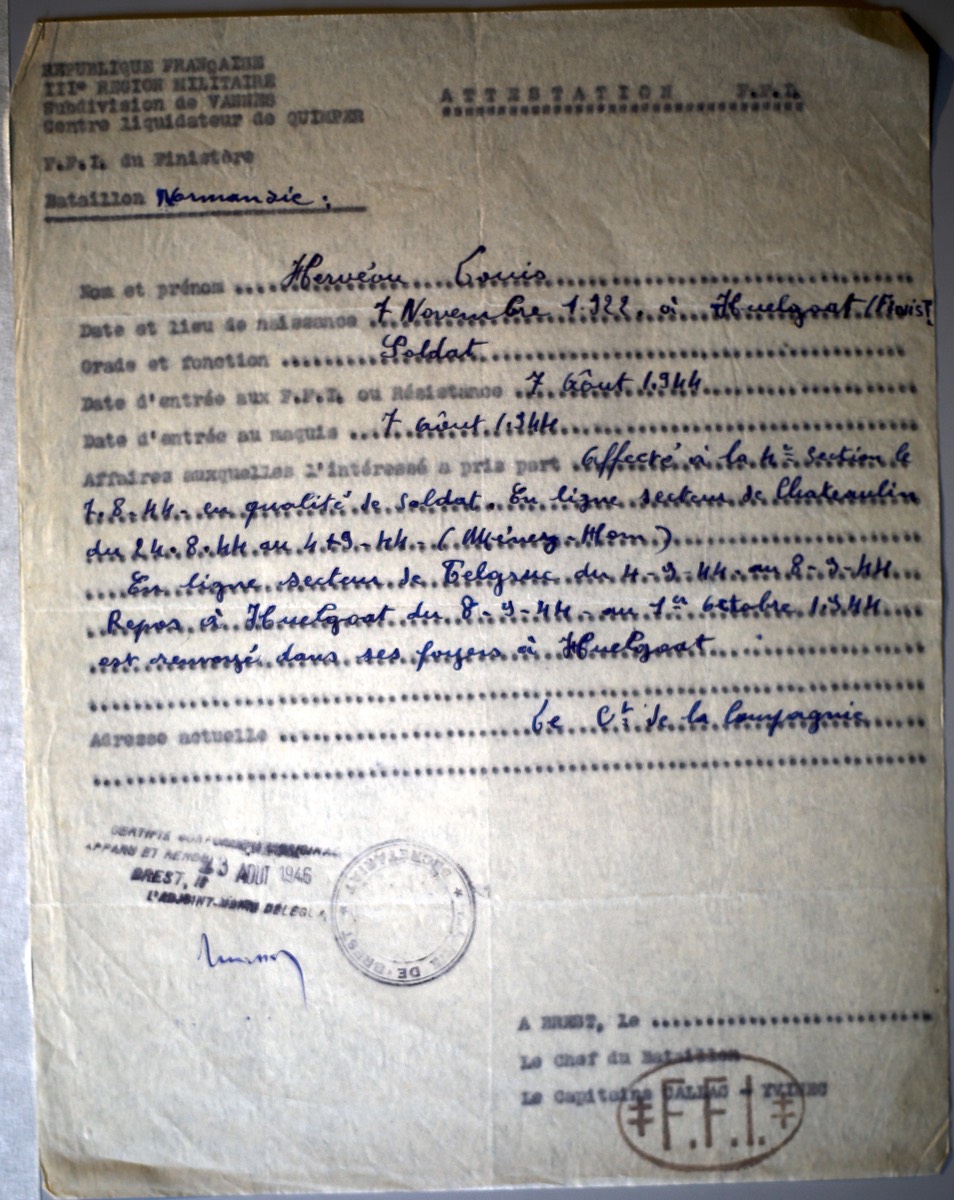 REPUBLIQUE FRANÇAISE
IIIe REGION MILITAIRE
Subdivision de VANNES
Centre liquidateur de QUIMPER
ATTESTATION F.F.I.
F.F.I. du Finistère
Bataillon Normandie :
Nom et prénom .... Hervéou Louis
Date et lieu de naissance 7 Novembre 1.922. à Huelgoat (Finist
Grade et fonction ........... Soldat
Date d'entrée aux F.F.I. ou Résistance 7 Aôut 1.944
Date d'entrée au maquis ... 7 Aôut 1.944
Affaires auxquelles l'intéressé a pris part Affecté à la 4e Section le
7.8.44. en qualité de Soldat. En ligne secteur de Chateaulin
du 24.8.44 au 4-9-44 - (Ménez-Hom)
En ligne secteur de Telgruc du 4-9-44 au 8-9-44
Repos à Huelgoat du 8-9-44 - au 1er Octobre 1.944
est renvoyé dans ses foyers à Huelgoat
Adresse actuelle ........... Le Ct de la Compagnie
CERTIFIE CONFORME A L'ORIGINAL
APPARU ET RENDU
BREST, le 23 AOUT 1946
L'ADJOINT-MAIRE DELEGUE
DE BREST
SECRETARIAT
A BREST, le
Le Chef du Bataillon
Le Capitaine
F.F.I.